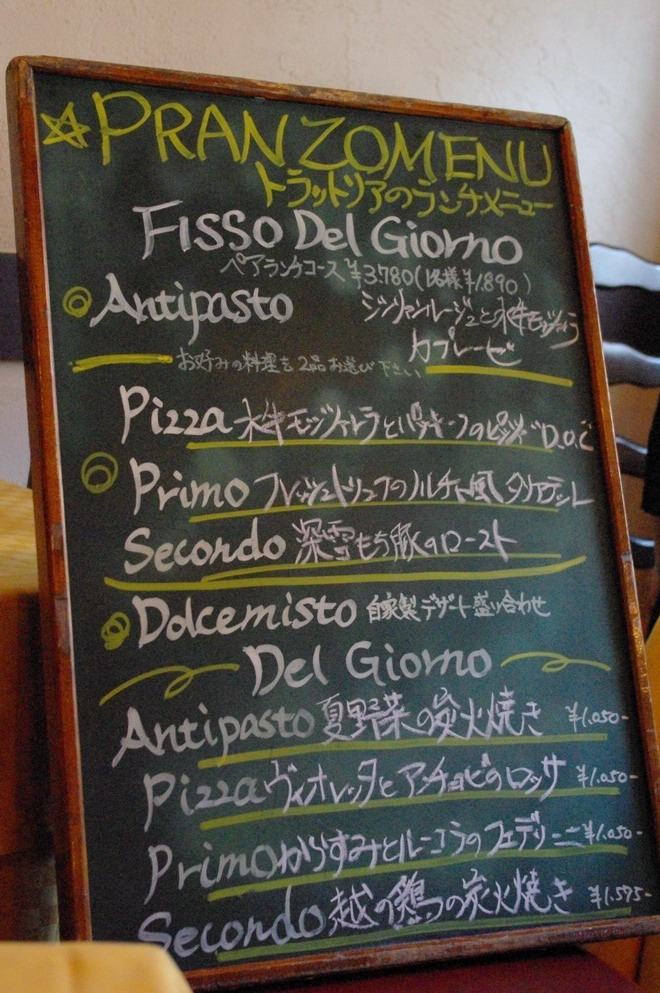 PRANZO MENU
トラットリアのランチメニュー
FISSO Del Giorno
ペアランチコース ¥3.780(1名様¥1.890)
Antipasto シシリアンルージュと水牛モッツァレラ
カプレーゼ
お好みの料理を2品お選び下さい
Pizza 水牛モッツァレラとバッキーノのピッツァ"D.O.C
Primo フレッシュトリュフのノルチャ風 タリアテッレ
Secondo 深雪もち豚のロースト
Dolcemisto 自家製デザート盛り合わせ
Del Giorno
Antipasto 夏野菜の炭火焼き ¥1.050-
Pizza ヴィオレッタとアンチョビのロッサ ¥1.050-
Primo からすみとルーコラのフェデリーニ ¥1.050-
Secondo 越の鶏の炭火焼き ¥1.575-